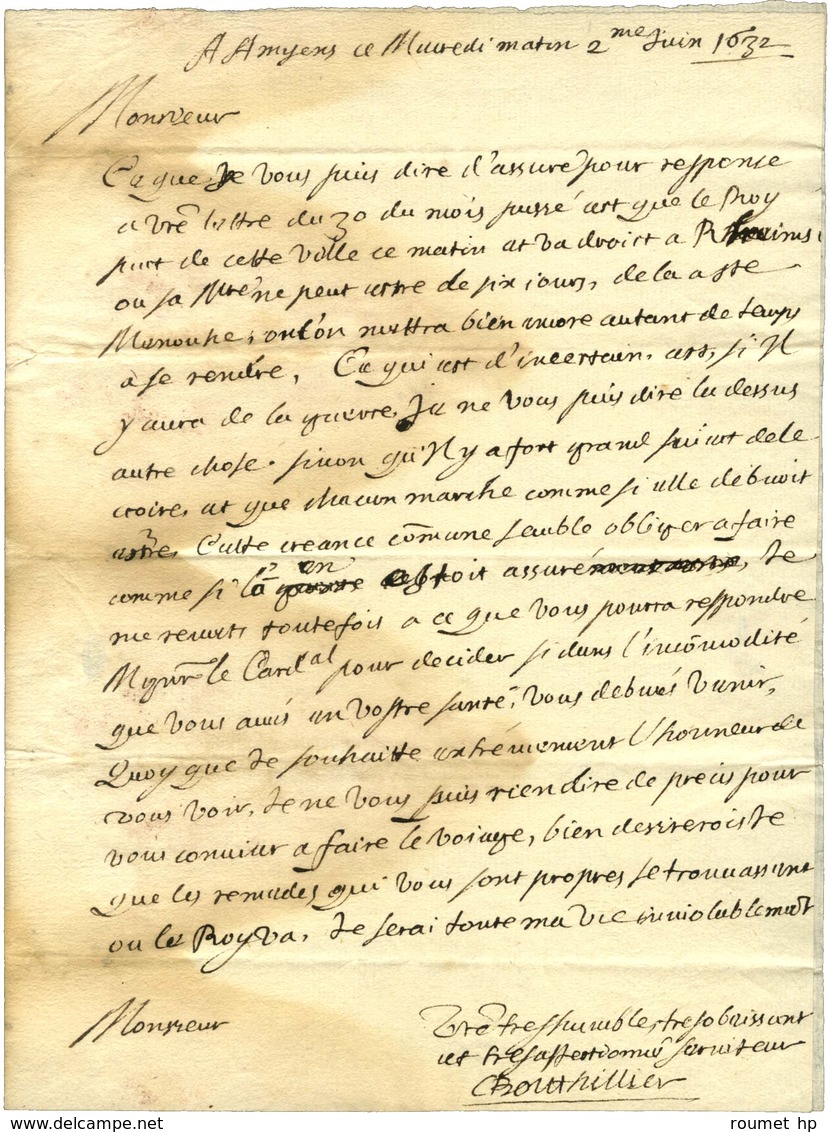 A Amyens ce Mercredi matin 2me Juin 1632
Monsieur
Ce que Je vous puis dire d'assuré pour response
a vre lettre du 30 du mois passé est que le Roy
part de cette ville ce matin et va droict a Rheims
ou sa Mté ne peut estre de six jours, de la a Ste
Menouhe, ou l'on mettra bien encore autant de temps
a se rendre, Ce qui est d'incertain, est, si Il
y aura de la guerre, Je ne vous puis dire la dessus
autre chose, sinon qu'Il y a fort grand suiect de le
croire, et que chacun marche comme si elle debvoit
estre, Cette creance comune semble obliger a faire
comme si l'on en estoit assuré, Je
me remets toutefois a ce que vous pourra respondre
Mgnr le Cardal pour decider si dans l'incomodité
que vous avés en vostre santé, vous debvés venir,
Quoy que Je souhaitte extrémement l'honneur de
vous voir, Je ne vous puis rien dire de precis pour
vous convier a faire le voiage, bien desirerois Je
que les remedes qui vous sont propres se trouvassent
ou le Roy va, Je serai toute ma vie inviolablemet
Monsieur
Vre tres humble, tres obeissant
et tres affectionné serviteur
Bouthillier
roumet hp